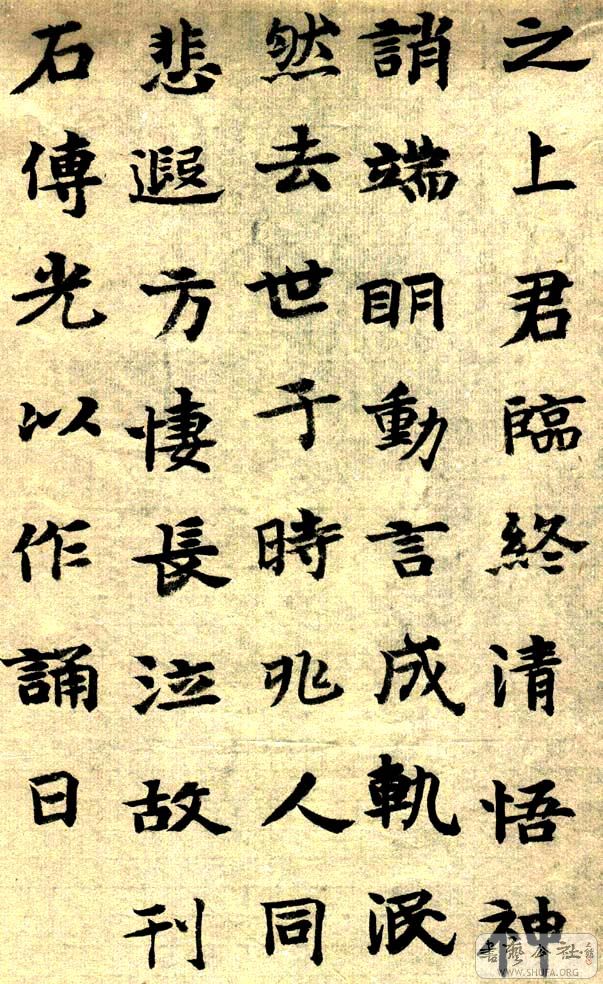 之上君臨終清悟神
誚端眀動言成軌泯
然去世于時兆人同
悲遐方悽長泣故刊
石傳光以作誦曰
書藝公社
WWW.SHUFA.ORG